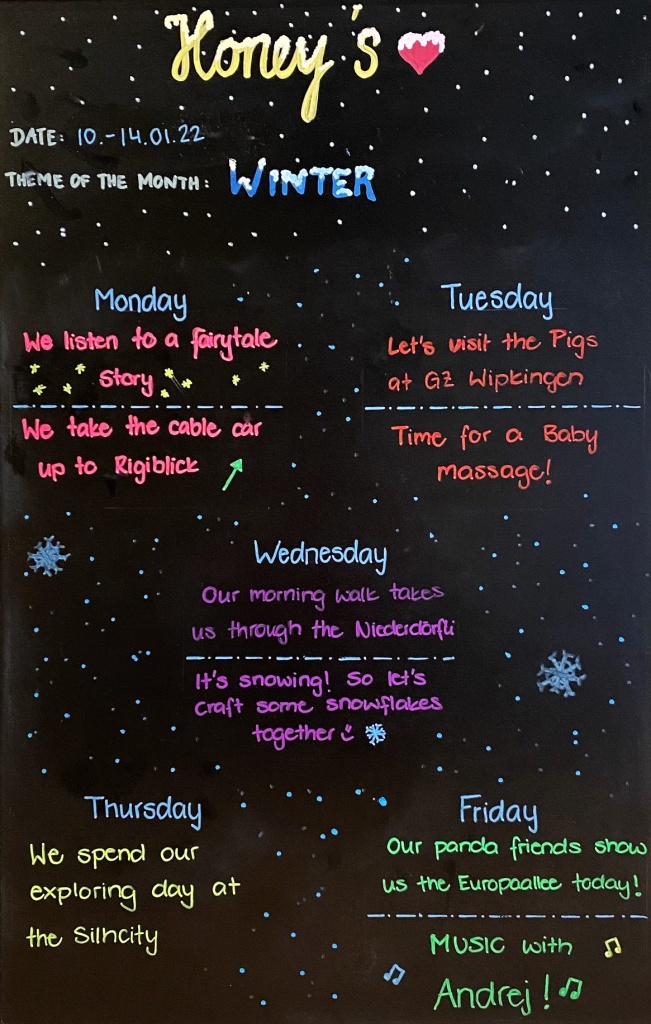 Honey's
DATE: 10.-14.01.22
THEME OF THE MONTH: WINTER
Monday
We listen to a fairytale
Story
We take the cable car
up to Rigiblick
Tuesday
Let's visit the Pigs
at GZ Wipkingen
Time for a Baby
massage!
Wednesday
Our morning walk takes
us through the Niederdörfli
It's snowing! So let's
craft some snowflakes
together
Thursday
We spend our
exploring day at
the Silhcity
Friday
Our panda friends show
us the Europaallee today!
MUSIC with
Andrej!